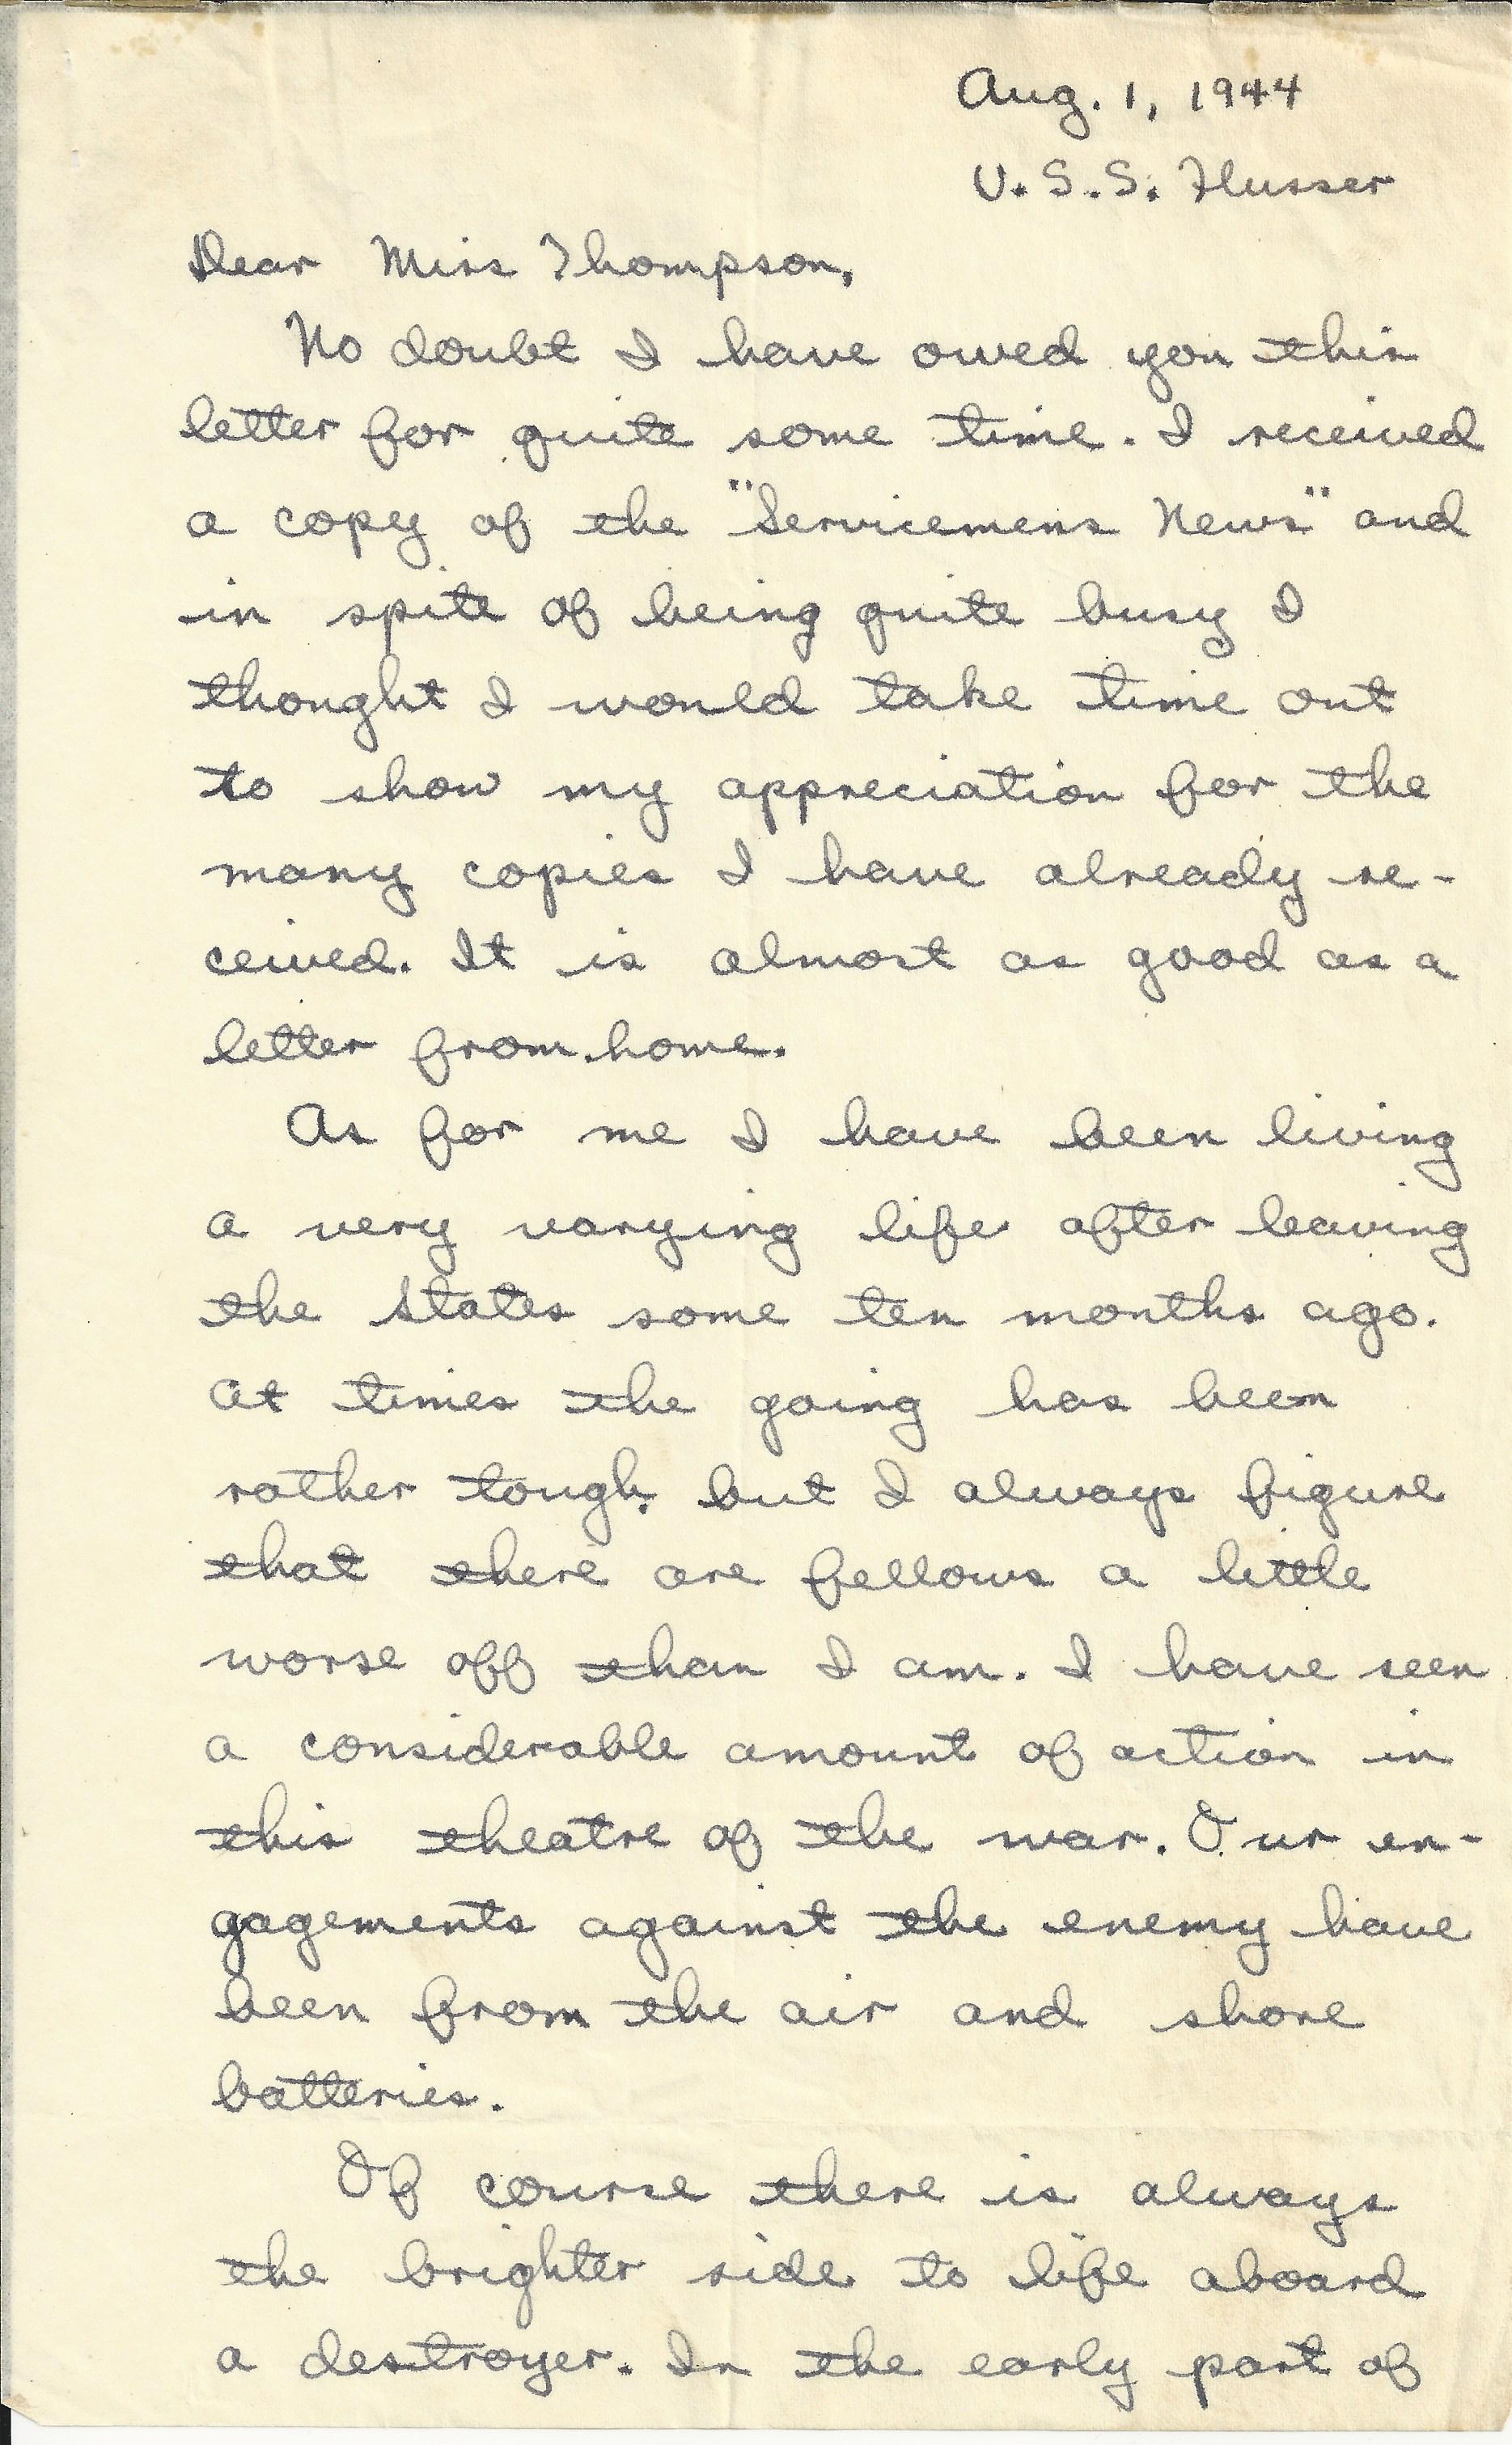 Aug. 1, 1944
U.S.S. Flusser
Dear Miss Thompson,
No doubt I have owed you this
letter for quite some time. I received
a copy of the "Servicemens News" and
in spite of being quite busy I
thought I would take time out
to show my appreciation for the
many copies I have already re-
ceived. It is almost as good as a
letter from home.
As for me I have been living
a very varying life after leaving
the States some ten months ago.
At times the going has been
rather tough, but I always figure
that there are fellows a little
worse off than I am. I have seen
a considerable amount of action in
this theatre of the war. Our en-
gagements against the enemy have
been from the air and shore
batteries.
Of course there is always
the brighter side to life aboard
a destroyer. In the early part of